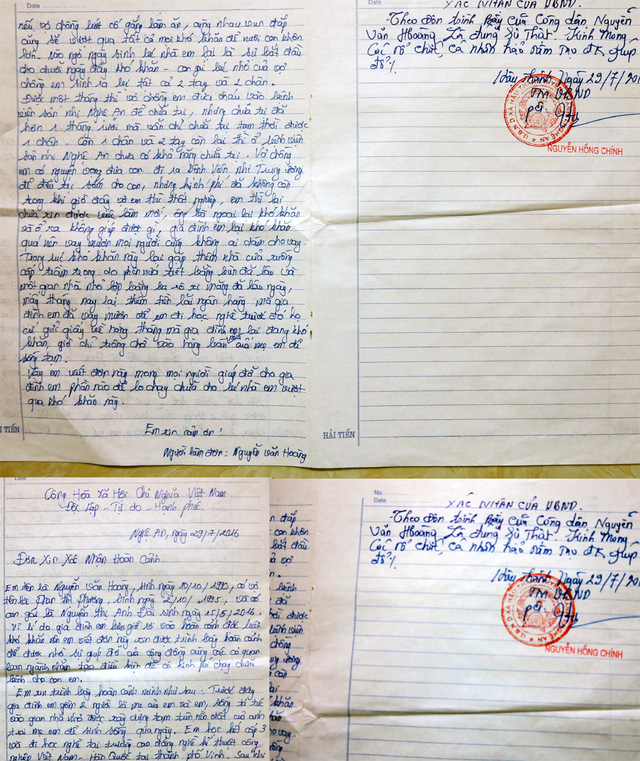 nếu vợ chồng biết cố gắng làm ăn, cùng nhau vun đắp
cũng sẽ vượt qua tất cả mọi khó khăn để nuôi con khôn
lớn. Nào ngờ ngày sinh bé nhà em lại là sự bắt đầu
cho chuỗi ngày đầy khó khăn - con gái bé nhỏ của vợ
chồng em sinh ra bị tật cả 2 tay và 2 chân.
Được một tháng thì vợ chồng em đưa cháu vào bệnh
viện sản nhi Nghệ An để chữa trị, nhưng chữa trị đã
hơn 1 tháng rưỡi mà vẫn chỉ chữa trị tạm thời được
1 chân. Còn 1 chân và 2 tay còn lại thì ở bệnh viện
sản nhi Nghệ An chưa có khả năng chữa trị. Vợ chồng
em có nguyện vọng đưa con đi ra Bệnh Viện Nhi Trung ương
để điều trị sớm cho con, nhưng kinh phí đã không còn
trong khi giờ đây vợ em thì thất nghiệp, em thì lại
chưa xin được việc làm mới, ông bà ngoại lại khó khăn
và ở xa không giúp được gì, gia đình em lại khó khăn
quá nên vay mượn mọi người cũng không ai dám cho vay.
Trong lúc khó khăn này lại gặp thêm nhà cửa xuống
cấp trầm trọng do
một gian nhà nhỏ lợp bằng bờ rô xi măng đã lâu ngày,
mấy tháng nay lại thêm tiền lãi ngân hàng mà gia
đình em đã vay mượn để em đi học nghề trước đó họ
cứ gửi giấy về hàng tháng mà gia đình em lại đang khó
khăn, giờ chỉ trông chờ vào hàng bán của mẹ em để
sống tạm.
Vậy em viết đơn này mong mọi người giúp đỡ cho gia
đình em phần nào để lo chạy chữa cho bé nhà em vượt
qua khó khăn này.
Em xin cảm ơn!
Người làm đơn: Nguyễn Văn Hoàng
HẢI TIẾN
Date
XÁC NHẬN CỦA UBND.
Theo đơn trình bày của Công dân Nguyễn
Văn Hoàng Là đúng sự Thật. Kính mong
Các tổ chức, cá nhân hảo tâm Tạo ĐK giúp
đỡ /.
Ngày 29/7/20
TM. UBND
NGUYỄN HỒNG CHÍNH
HẢI TIẾN
Cộng Hoà Xã Hội Chủ Nghĩa Việt Nam
Độc Lập - Tự do - Hạnh phúc.
Nghệ An, ngày 29/7/2016
Đơn Xin Xác Nhận Hoàn Cảnh.
Em tên là Nguyễn Văn Hoàng, sinh ngày có vợ
tên là Phan Thị Phương, sinh ngày và có
con gái là Nguyễn Thị Anh Đài sinh ngày 15/5/2016.
Vì lí do gia đình em bây giờ rơi vào hoàn cảnh đặc biệt
khó khăn nên em viết đơn này xin được trình bày hoàn cảnh
để được nhờ sự giúp đỡ của cộng đồng cùng các cơ quan
ban ngành nhằm tạo điều kiện để có kinh phí chạy chữa
bệnh cho con em.
Em xin trình bày hoàn cảnh mình như sau: Trước đây
gia đình em gồm 2 người là mẹ của em và em, sống
gian nhà nhỏ được xây dựng tạm trên nền đất của anh
trai mẹ em để sinh sống qua ngày. Em học hết cấp 3
và đi học nghề tại trường cao đẳng nghề kĩ thuật công
nghiệp Việt Nam - Hàn Quốc tại thành phố Vinh. Sau khi
No.
Date
XÁC NHẬN CỦA UBND.
Theo đơn trình bày của Công dân Nguyễn
Văn Hoàng Là đúng sự Thật. Kính mong
Các tổ chức, cá nhân hảo tâm Tạo ĐK giúp
đỡ /.
Ngày 29/7/20
TM. UBND
NGUYỄN HỒNG CHÍNH